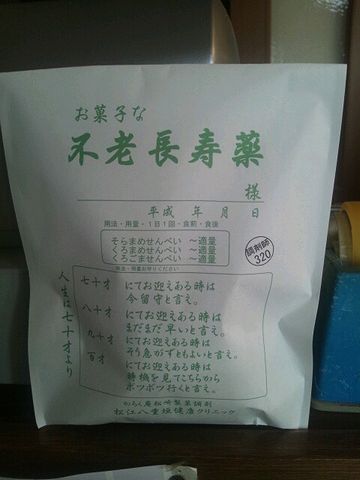 お菓子な
不老長寿薬
様
平成 年 月 日
用法・用量・1日1回・食前・食後
そらまめせんべい ～適量
くろまめせんべい ～適量
くろごませんべい ～適量
調剤師
320
用法・用量お守りください
人生は七十才より
七十才 にてお迎えある時は
今留守と言え。
八十才 にてお迎えある時は
まだまだ早いと言え。
九十才 にてお迎えある時は
そう急がずともよいと言え。
百才 にてお迎えある時は
時機を見てこちらから
ボツボツ行くと言え。
松崎製菓調剤
松江八重垣健康クリニック